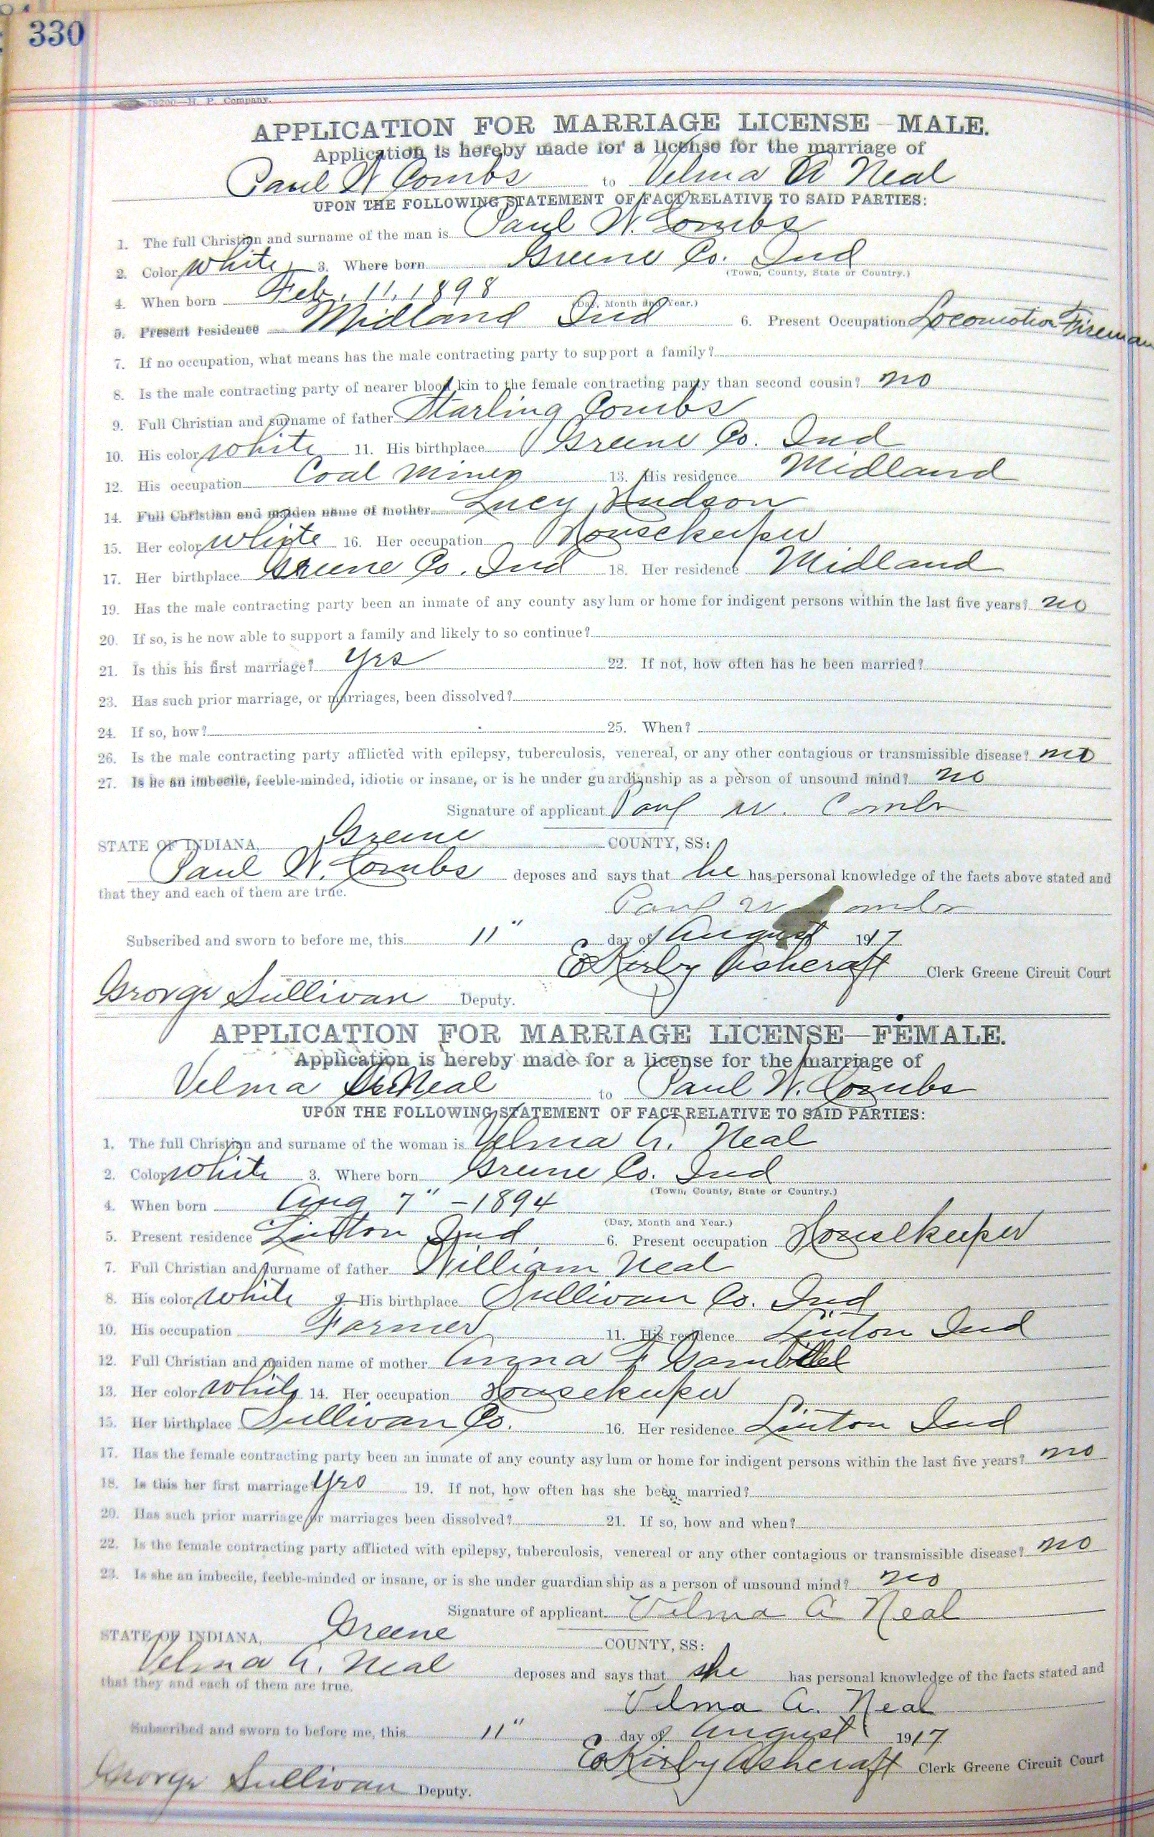 330
78200—H. P. Company.
APPLICATION FOR MARRIAGE LICENSE—MALE.
Application is hereby made for a license for the marriage of
Paul W Combs to Velma A Neal
UPON THE FOLLOWING STATEMENT OF FACT RELATIVE TO SAID PARTIES:
1. The full Christian and surname of the man is Paul W. Combs
2. Color white 3. Where born Greene Co. Ind
(Town, County, State or Country.)
4. When born Feb. 11, 1898
(Day, Month and Year.)
5. Present residence Midland Ind 6. Present Occupation Locomotion Fireman
7. If no occupation, what means has the male contracting party to support a family?
8. Is the male contracting party of nearer blood kin to the female contracting party than second cousin? no
9. Full Christian and surname of father Starling Combs
10. His color white 11. His birthplace Greene Co. Ind
12. His occupation Coal Miner 13. His residence Midland
14. Full Christian and maiden name of mother Lucy Hudson
15. Her color white 16. Her occupation Housekeeper
17. Her birthplace Greene Co. Ind 18. Her residence Midland
19. Has the male contracting party been an inmate of any county asylum or home for indigent persons within the last five years? no
20. If so, is he now able to support a family and likely to so continue?
21. Is this his first marriage? yes 22. If not, how often has he been married?
23. Has such prior marriage, or marriages, been dissolved?
24. If so, how? 25. When?
26. Is the male contracting party afflicted with epilepsy, tuberculosis, venereal, or any other contagious or transmissible disease? no
27. Is he an imbecile, feeble-minded, idiotic or insane, or is he under guardianship as a person of unsound mind? no
Signature of applicant Paul W. Combs
STATE OF INDIANA, Greene COUNTY, SS:
Paul W. Combs deposes and says that he has personal knowledge of the facts above stated and
that they and each of them are true.
Paul W Combs
Subscribed and sworn to before me, this 11" day of August 1917
E Kirby Ashcraft Clerk Greene Circuit Court
George Sullivan Deputy.
APPLICATION FOR MARRIAGE LICENSE—FEMALE.
Application is hereby made for a license for the marriage of
Velma A Neal to Paul W. Combs
UPON THE FOLLOWING STATEMENT OF FACT RELATIVE TO SAID PARTIES:
1. The full Christian and surname of the woman is Velma A. Neal
2. Color white 3. Where born Greene Co. Ind
(Town, County, State or Country.)
4. When born Aug 7" - 1894
(Day, Month and Year.)
5. Present residence Linton Ind 6. Present occupation Housekeeper
7. Full Christian and surname of father William Neal
8. His color white 9 His birthplace Sullivan Co. Ind
10. His occupation Farmer 11. His residence Linton Ind
12. Full Christian and maiden name of mother Anna F Gambill
13. Her color white 14. Her occupation Housekeeper
15. Her birthplace Sullivan Co. 16. Her residence Linton Ind
17. Has the female contracting party been an inmate of any county asylum or home for indigent persons within the last five years? no
18. Is this her first marriage? yes 19. If not, how often has she been married?
20. Has such prior marriage or marriages been dissolved? 21. If so, how and when?
22. Is the female contracting party afflicted with epilepsy, tuberculosis, venereal or any other contagious or transmissible disease? no
23. Is she an imbecile, feeble-minded or insane, or is she under guardianship as a person of unsound mind? no
Signature of applicant Velma A Neal
STATE OF INDIANA, Greene COUNTY, SS:
Velma A. Neal deposes and says that she has personal knowledge of the facts stated and
that they and each of them are true.
Velma A. Neal
Subscribed and sworn to before me, this 11" day of August 1917
E Kirby Ashcraft Clerk Greene Circuit Court
George Sullivan Deputy.